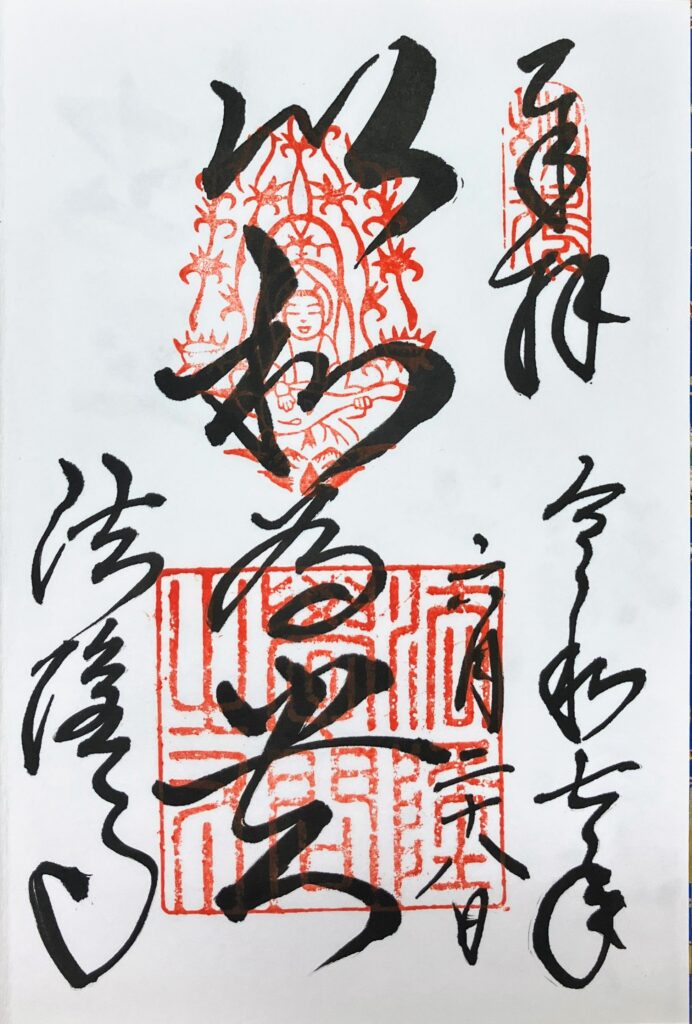 奉拝
令和七年
六月二十八日
以和為貴
法隆寺